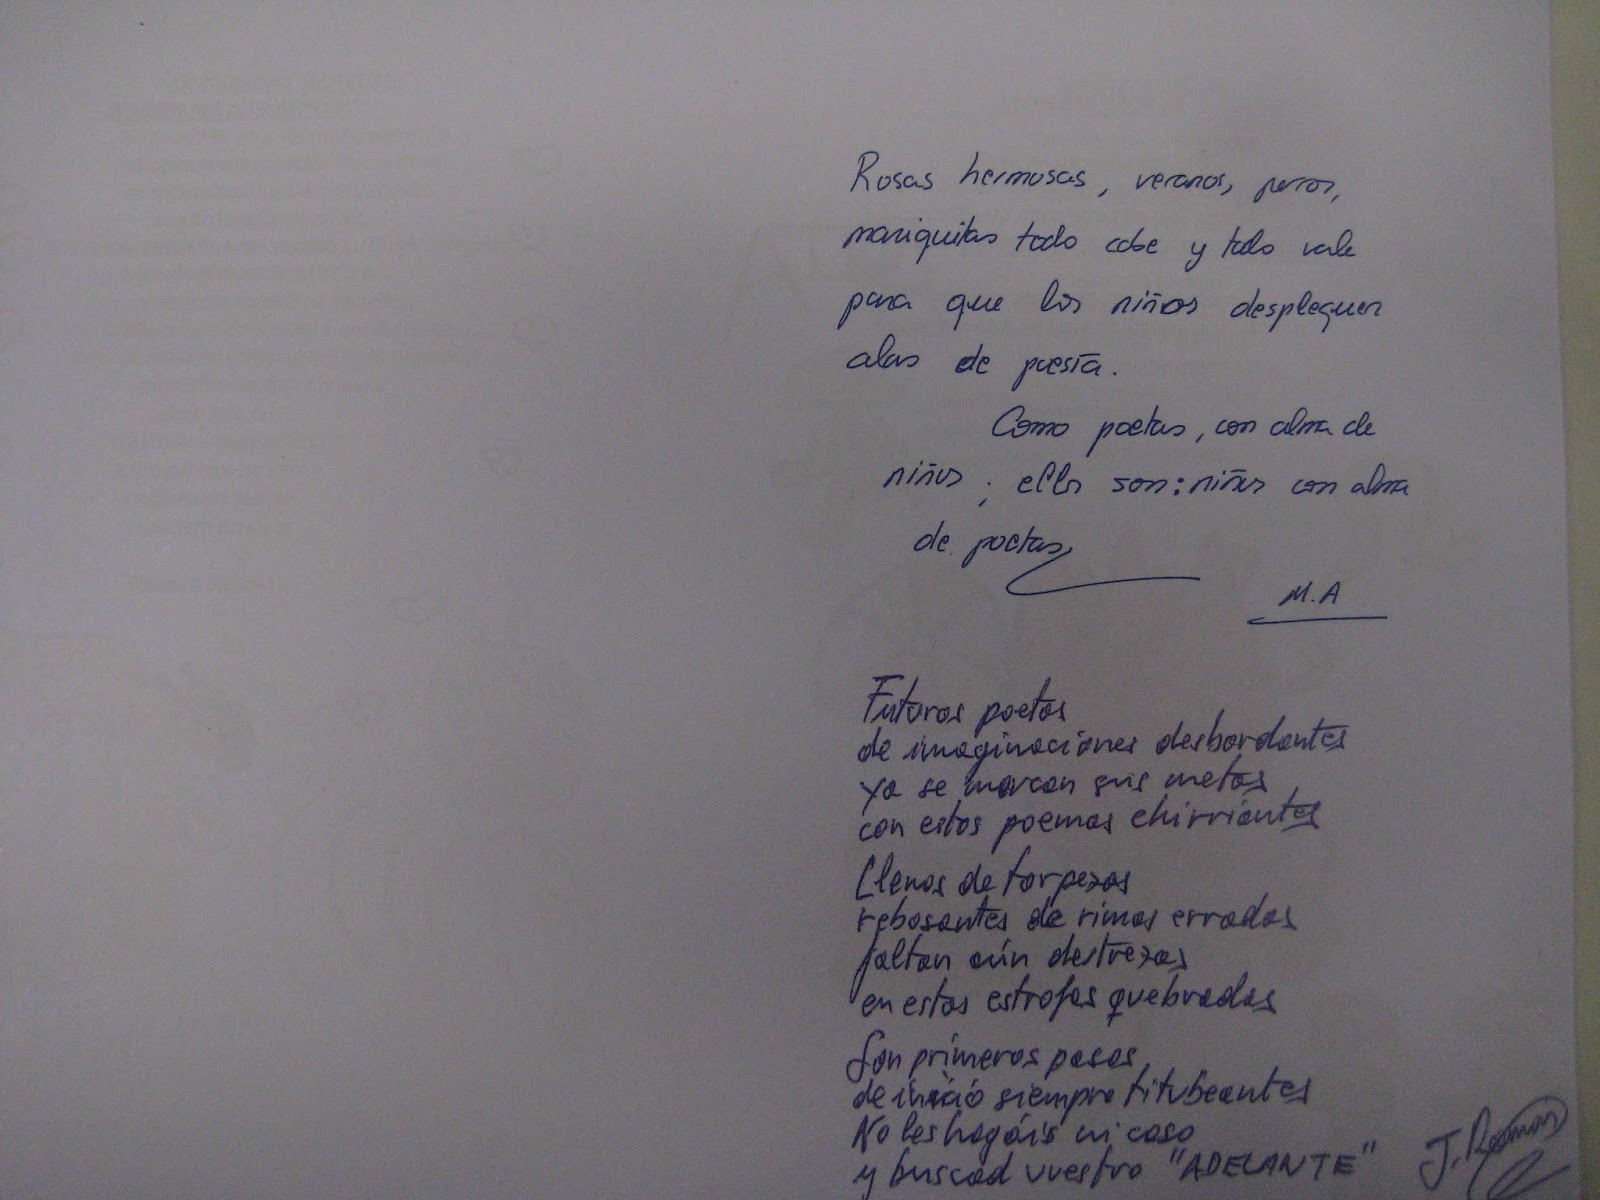 Rosas hermosas, veranos, perros,
mariquitas todo cabe y todo vale
para que los niños desplieguen
alas de poesía.
Como poetas, con alma de
niños; ellos son: niños con alma
de poetas
M.A
Futuros poetas
de imaginaciones desbordantes
ya se marcan sus metas
con estos poemas chirriantes
Llenos de torpezas
rebosantes de rimas erradas
faltan aún destrezas
en estas estrofas quebradas
Son primeros pasos
de inicio siempre titubeantes
No les hagáis ni caso
y buscad vuestro "ADELANTE"
J. Ramon